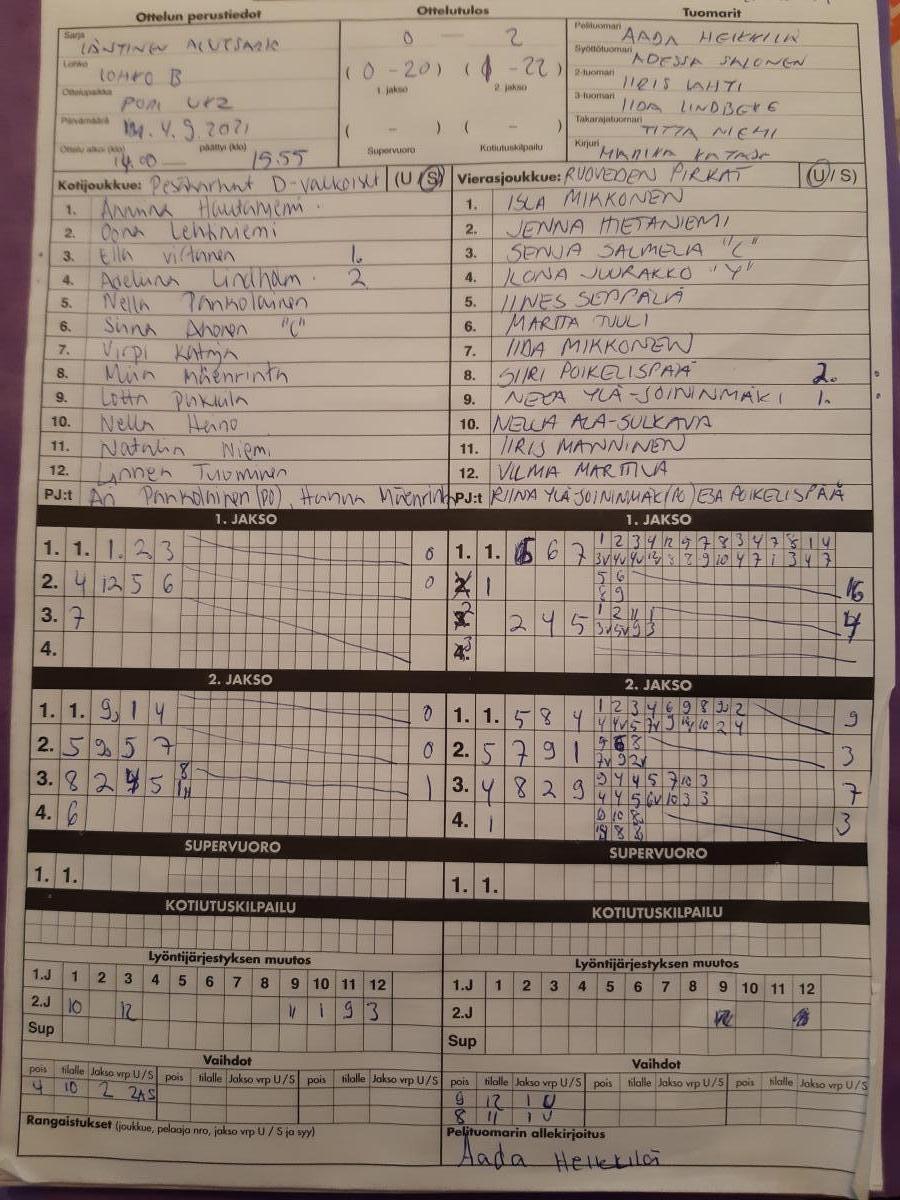 Ottelun perustiedot
Ottelutulos
Tuomarit
Sarja LÄNTINEN ALUESARJA
Lohko LOHKO B
Ottelupaikka PORI UK2
Päivämäärä 4.9.2021
Ottelu alkoi (klo) 14.00 — päättyi (klo) 15.55
0 — 2
(0 - 20) (1 - 22)
1. jakso 2. jakso
( - ) ( - )
Supervuoro Kotiutuskilpailu
Pelituomari AADA HEIKKILÄ
Syöttötuomari ADESSA SALONEN
2-tuomari IIRIS LAHTI
3-tuomari IIDA LINDBERG
Takarajatuomari TIITTA NIEMI
Kirjuri MARIKA KATAJA
Kotijoukkue: Pesäkarhut D-valkoiset (U/S)
1. Annina Hautaniemi
2. Oona Lehtiniemi
3. Ella Virtanen 1.
4. Adeliina Lindholm 2
5. Nella Pankolainen
6. Sinna Ahonen "C"
7. Virpi Kataja
8. Miia Mäenrinta
9. Lotta Pukkila
10. Nella Heino
11. Natalia Niemi
12. Linnea Tuominen
PJ:t Ari Pankolainen (PO), Hanna Mäenrinta
Vierasjoukkue: RUOVEDEN PIRKAT (U/S)
1. ISLA MIKKONEN
2. JENNA HIETANIEMI
3. SENJA SALMELA "C"
4. ILONA JUURAKKO "Y"
5. IINES SEPPÄLÄ
6. MARITA TUULI
7. IIDA MIKKONEN
8. SIIRI POIKELISPÄÄ 2.
9. NEEA YLÄ-JOININMÄKI 1.
10. NELLA ALA-SULKAVA
11. IIRIS MANNINEN
12. VILMA MARTTILA
PJ:t RIINA YLÄ-JOININMÄKI (PO) ESA POIKELISPÄÄ
1. JAKSO
1. 1. 1. 2 3 0
2. 4 12 5 6 0
3. 7
4.
1. JAKSO
1. 1. 6 7 1 2 3 4 12 9 7 8 3 4 7 8 1 4
2 1 5 6 16
8 9
2 4 5 1 2 11 1 4
2. JAKSO
1. 1. 9 1 4 0
2. 5 9 5 7 0
3. 8 2 4 5 8 1
4. 6
2. JAKSO
1. 1. 5 8 4 1 2 3 4 6 9 8 2 9
2. 5 7 9 1 3
3. 4 8 2 9 9 4 4 5 7 10 3 7
4 4 5 6v 10 3 3
4. 1 3
SUPERVUORO
1. 1.
SUPERVUORO
1. 1.
KOTIUTUSKILPAILU
KOTIUTUSKILPAILU
Lyöntijärjestyksen muutos
1.J 1 2 3 4 5 6 7 8 9 10 11 12
2.J 10 12 11 1 9 3
Sup
Lyöntijärjestyksen muutos
1.J 1 2 3 4 5 6 7 8 9 10 11 12
2.J
Sup
Vaihdot
pois tilalle Jakso vrp U/S pois tilalle Jakso vrp U/S pois tilalle Jakso vrp U/S
4 10 2 2AS
Vaihdot
pois tilalle Jakso vrp U/S pois tilalle Jakso vrp U/S pois tilalle Jakso vrp U/S
9 12 1 U
8 11 1 U
Rangaistukset (joukkue, pelaaja nro, jakso vrp U / S ja syy)
Pelituomarin allekirjoitus
Aada Heikkilä